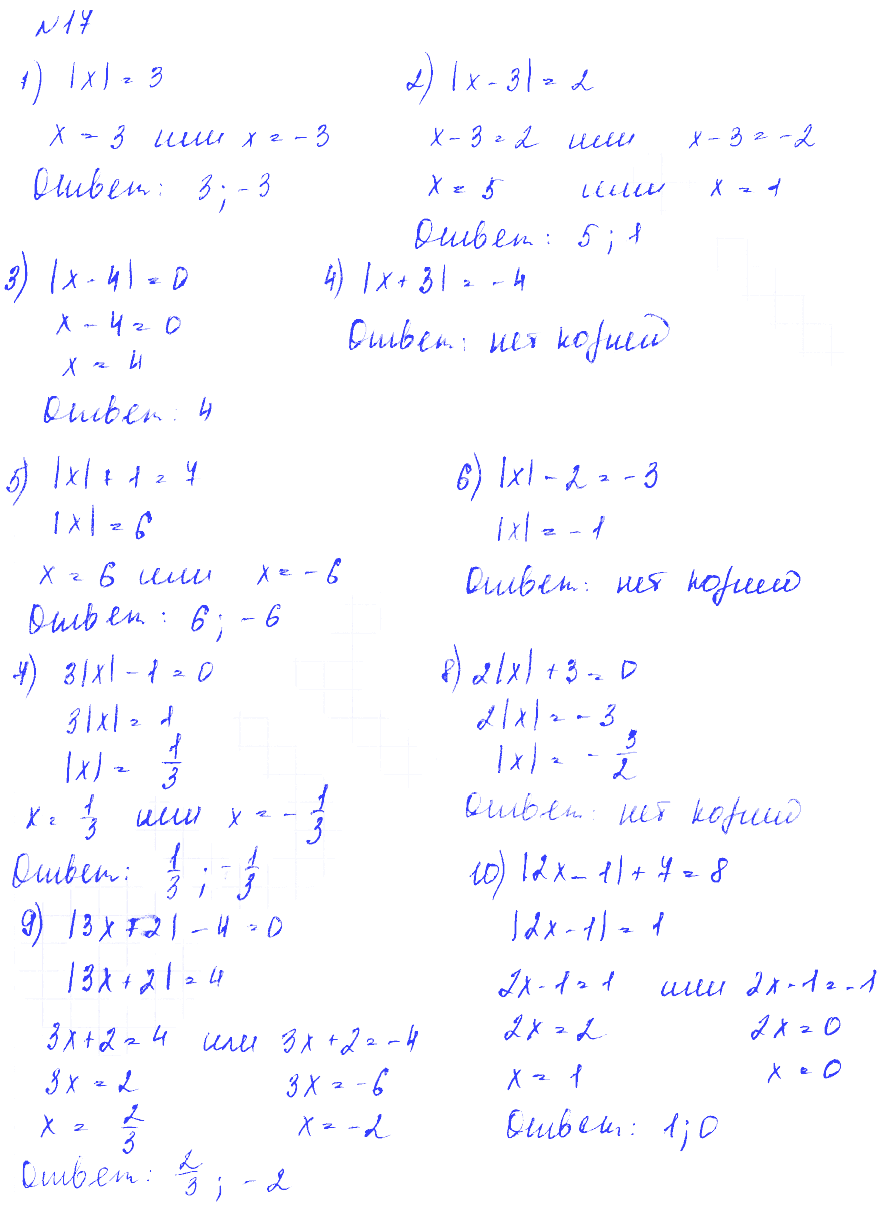 №17
1) |x| = 3
x = 3 или x = -3
Ответ: 3; -3
2) |x - 3| = 2
x - 3 = 2 или x - 3 = -2
x = 5 или x = 1
Ответ: 5; 1
3) |x - 4| = 0
x - 4 = 0
x = 4
Ответ: 4
4) |x + 3| = -4
Ответ: нет корней
5) |x| + 1 = 7
|x| = 6
x = 6 или x = -6
Ответ: 6; -6
6) |x| - 2 = -3
|x| = -1
Ответ: нет корней
7) 3|x| - 1 = 0
3|x| = 1
|x| = 1/3
x = 1/3 или x = -1/3
Ответ: 1/3; -1/3
8) 2|x| + 3 = 0
2|x| = -3
|x| = -3/2
Ответ: нет корней
9) |3x + 2| - 4 = 0
|3x + 2| = 4
3x + 2 = 4 или 3x + 2 = -4
3x = 2 3x = -6
x = 2/3 x = -2
Ответ: 2/3; -2
10) |2x - 1| + 7 = 8
|2x - 1| = 1
2x - 1 = 1 или 2x - 1 = -1
2x = 2 2x = 0
x = 1 x = 0
Ответ: 1; 0